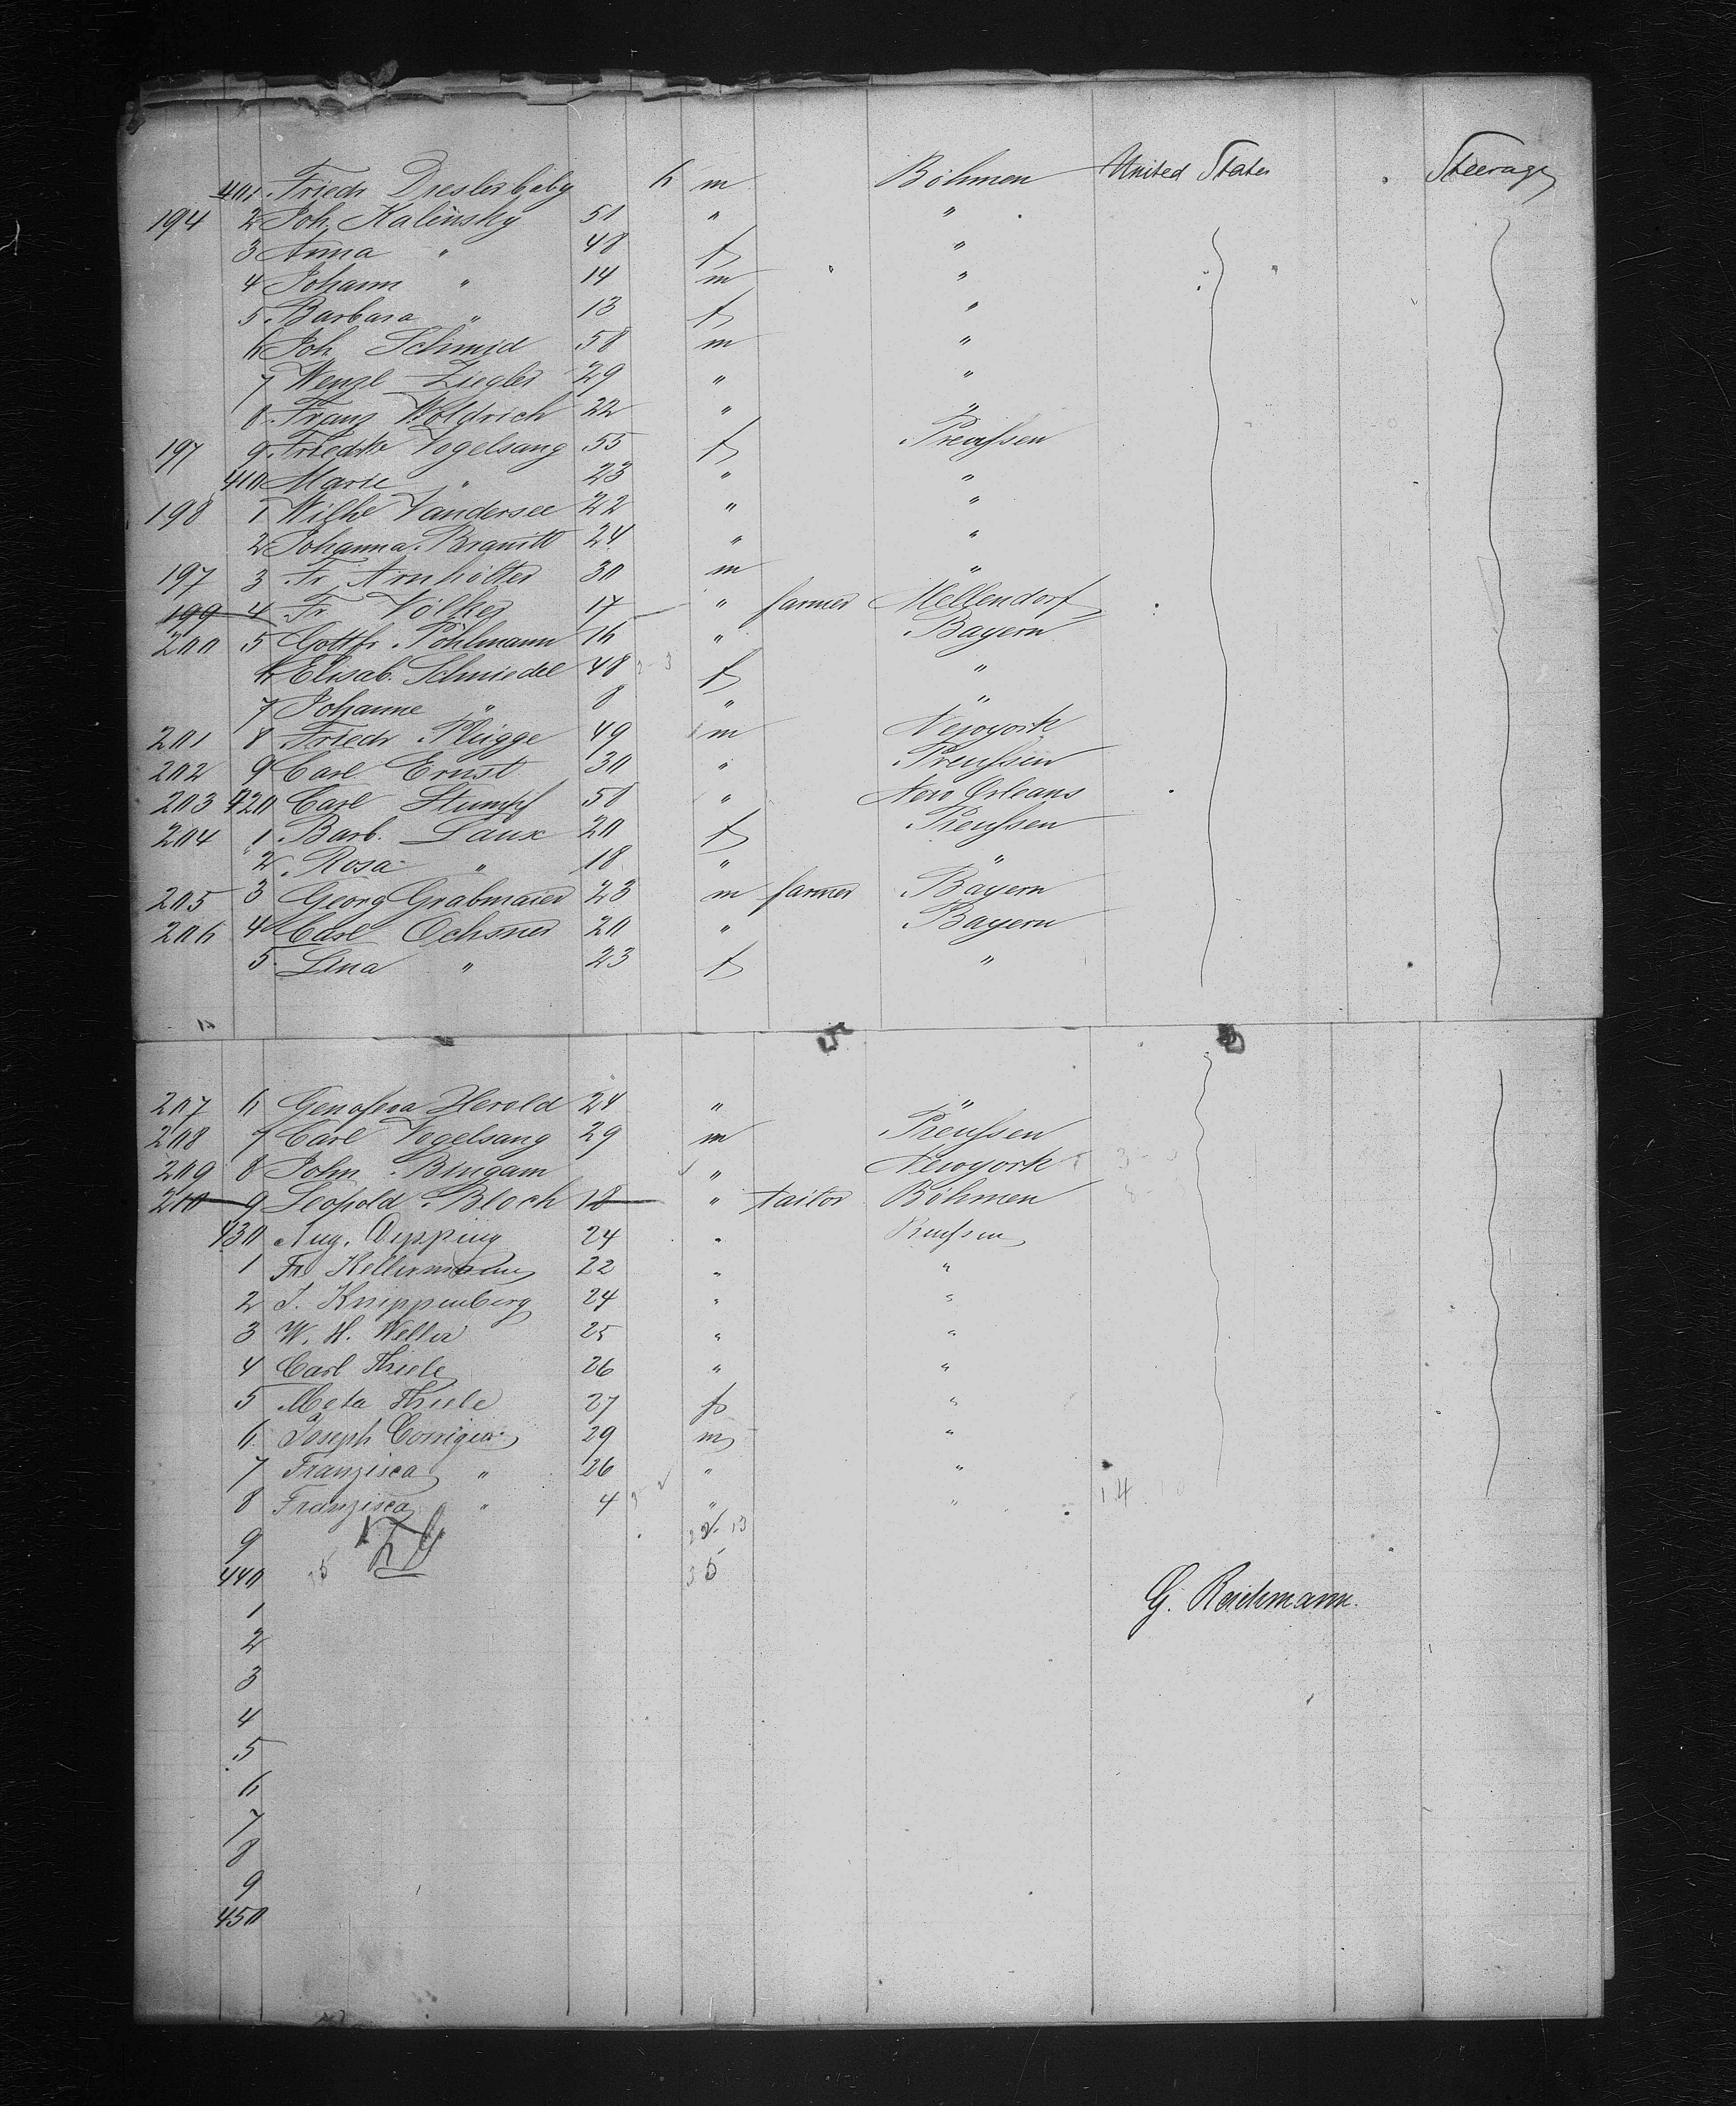 401 Friedr Diesler baby 6 m Böhmen United States Steerage
194 2 Joh. Kalinsky 51 " "
3 Anna " 48 f "
4 Johann " 14 m "
5 Barbara " 13 f "
6 Joh Schmid 58 m "
7 Wenzl Ziegler 29 " "
8 Franz Woldrich 22 " "
197 9 Friedke Vogelsang 55 f Preußen
410 Marie " 23 " "
198 1 Wilhe Vandersee 22 " "
2 Johanna 24 " "
197 3 Fr. Arnhölter 30 m "
199 4 Fr Völker 17 " farmer Mellendorf
200 5 Gottfr. Pöhlmann 16 " Bayern
6 Elisab. Schmiedel 48 f "
7 Johanne " 8 " "
201 8 Friedr Plügge 49 m Newyork
202 9 Carl Ernst 30 " Preußen
203 420 Carl Stumpf 50 " New Orleans
204 1 Barb. Laux 20 f Preußen
2 Rosa " 18 " "
205 3 Georg Grabmaier 23 m farmer Bayern
206 4 Carl Ochsner 20 " Bayern
5 Lina " 23 f "
207 6 Genofeva Herold 24 " "
208 7 Carl Vogelsang 29 m Preußen
209 8 John Bingam " Newyork
210 9 Leopold Bloch 18 " tailor Böhmen
430 Aug. Depping 24 " Preußen
1 Fr. Kellermann 22 " "
2 J. Knippenberg 24 " "
3 W. H. Weller 25 " "
4 Carl Thiele 26 " "
5 Meta Thiele 27 f "
6 Joseph 29 m "
7 Franzisca " 26 " "
8 Franzisca " 4 " "
9
440
1
2
3
4
5
6
7
8
9
450
G. Reichmann.